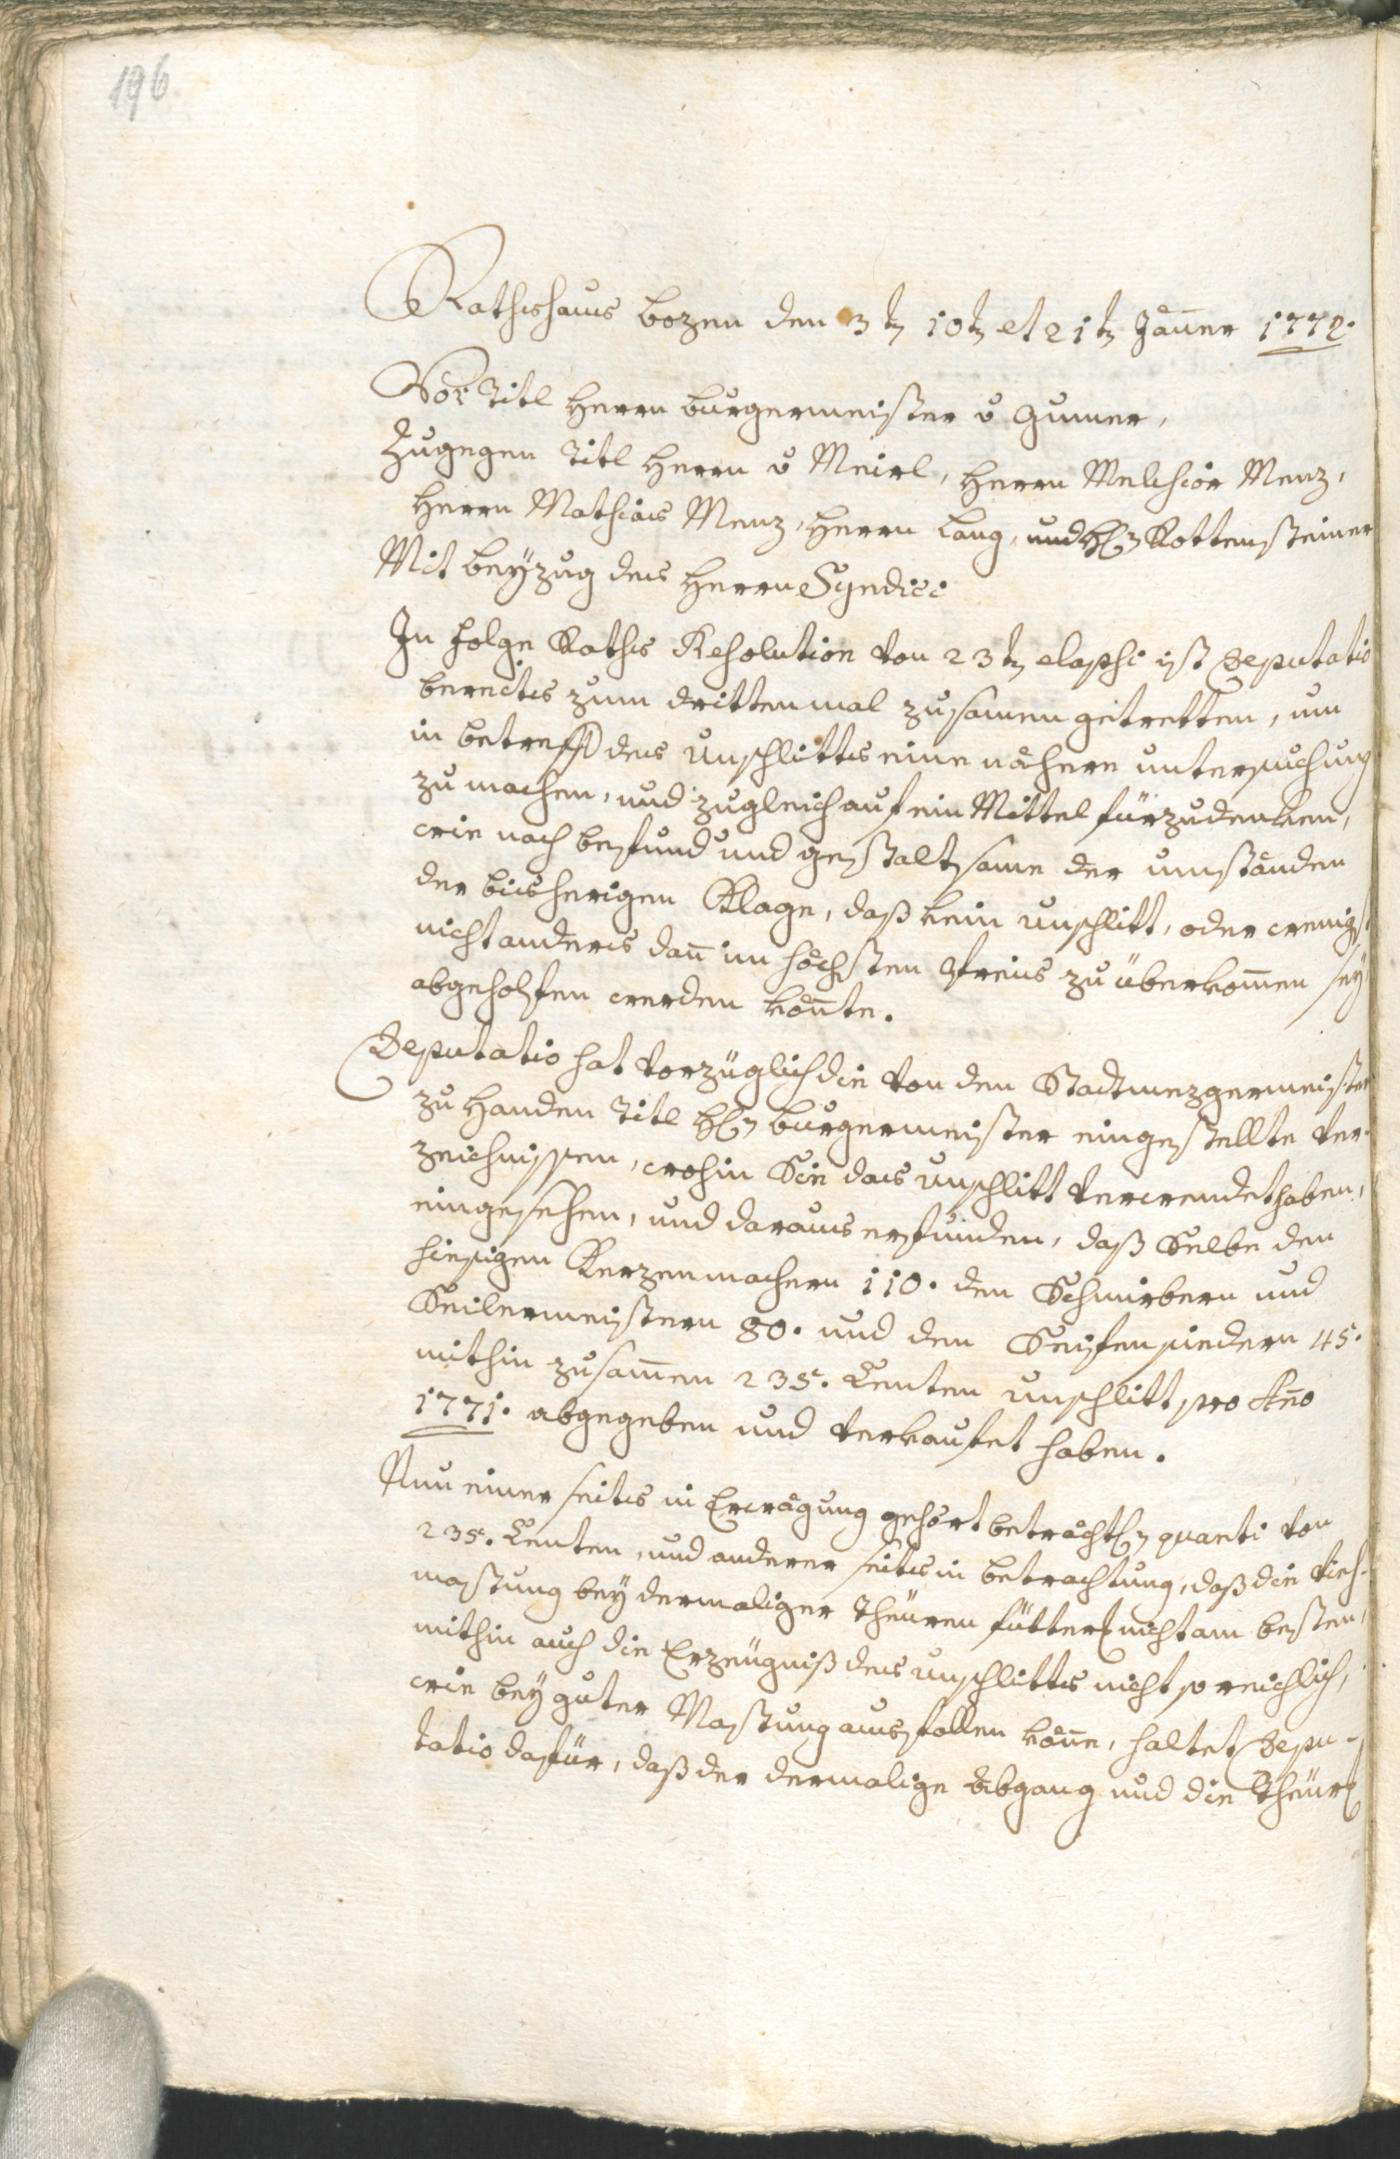 196
Rathshaus bozen den 3t. 10t. et 21t. Jäner 1772.
Vor Titl Herrn burgermeister v Gumer,
Zugegen Titl Herrn v Meirl, Herrn Melchior Menz,
Herrn Mathias Menz, Herrn Lang, und H. Rottensteiner
Mit beyzug des Herrn Syndici
In folge Raths Resolution von 23t. elapsi ist Deputatio
bereits zum drittenmal zusamengetretten, um
in betreff des Unschlitts eine nähere untersuchung
zu machen, und zugleich auf ein Mittel fürzudenken,
wie nach befund und gestaltsame der umständen
der bisherigen Klage, daß kein unschlitt, oder wenigst
nicht anders dan im höchsten Preis zu überkomen sey
abgeholfen werden könte.
Deputatio hat vorzüglich die von den Stadtmezgermeister
zu Handen Titl H. burgermeister eingestellte Ver-
zeichnissen, wohin Sie das Unschlitt verwendet haben,
eingesehen, und daraus erfunden, daß Selbe den
hiesigen Kerzenmachern 110. den Schmirbern und
Seilermeistern 80. und den Seifensiedern 45.
mithin zusamen 235. Centen unschlitt pro Ano
1771. abgegeben und verkaufet haben.
Nun einer seits in Erwägung gehört beträchtl. quanti von
235. Centen, und anderer seits in betrachtung, daß die Vieh-
mastung bey dermaliger Theuren fütter nicht am besten,
mithin auch die Erzeugniß des unschlitts nicht so reichlich,
wie bey guter Mastung ausfallen köne, haltet Depu-
tatio dafür, daß der dermalige Abgang und die Theur